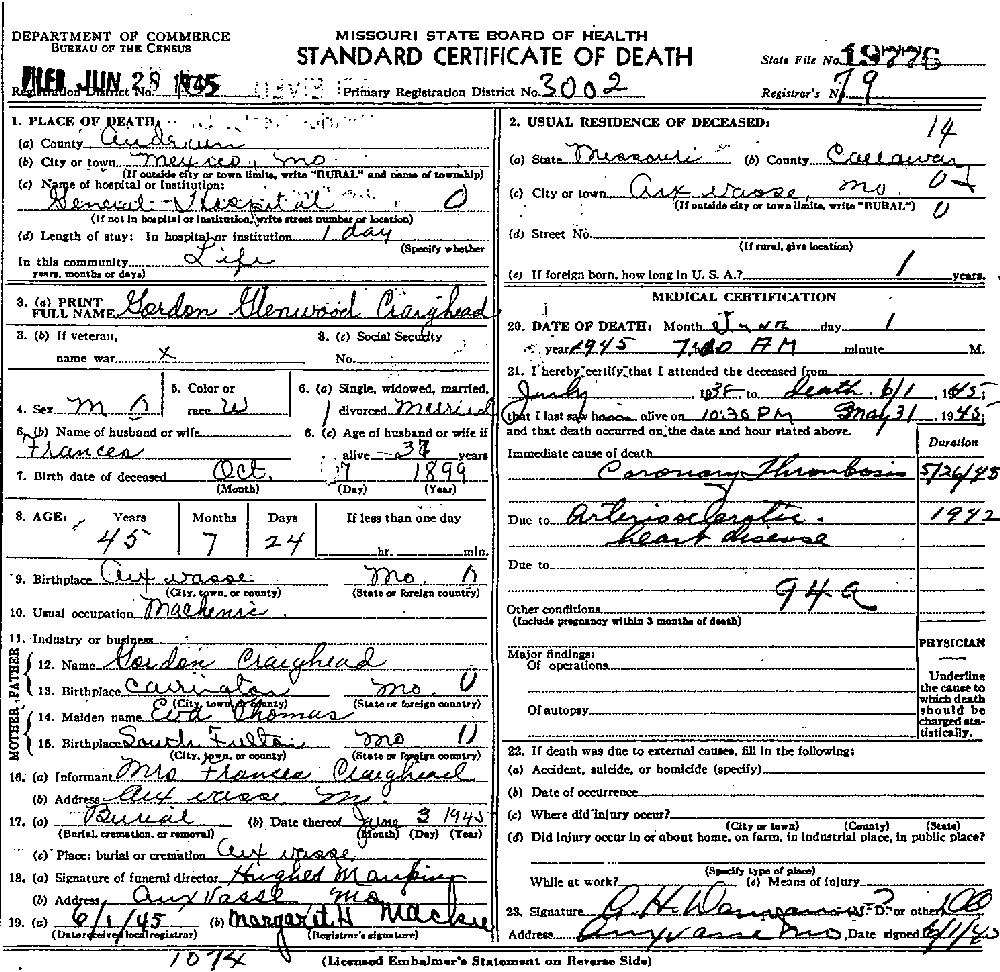 DEPARTMENT OF COMMERCE
BUREAU OF THE CENSUS
MISSOURI STATE BOARD OF HEALTH
STANDARD CERTIFICATE OF DEATH
State File No. 19776
FILED JUN 29 1945
Registration District No.
Primary Registration District No. 3002
Registrar's No. 79
1. PLACE OF DEATH:
(a) County Audrain
(b) City or town Mexico, Mo
(If outside city or town limits, write "RURAL" and name of township)
(c) Name of hospital or institution:
General Hospital 0
(If not in hospital or institution, write street number or location)
(d) Length of stay: In hospital or institution 1 day
(Specify whether
In this community Life
years, months or days)
3. (a) PRINT
FULL NAME Gordon Glenwood Craighead
3. (b) If veteran,
name war x
3. (c) Social Security
No.
4. Sex M 0
5. Color or
race W
6. (a) Single, widowed, married,
divorced Married
6. (b) Name of husband or wife
Frances
6. (c) Age of husband or wife if
alive 37 years
7. Birth date of deceased Oct. 7 1899
(Month) (Day) (Year)
8. AGE: Years Months Days If less than one day
45 7 24 hr. min.
9. Birthplace Aux vasse Mo. 0
(City, town, or county) (State or foreign country)
10. Usual occupation Mechenic
11. Industry or business
FATHER
12. Name Gordon Craighead
13. Birthplace Carrington Mo. 0
(City, town, or county) (State or foreign country)
MOTHER
14. Maiden name Eva Thomas
15. Birthplace South Fulton Mo 0
(City, town, or county) (State or foreign country)
16. (a) Informant Mrs Frances Craighead
(b) Address Aux vasse Mo.
17. (a) Burial (b) Date thereof June 3 1945
(Burial, cremation, or removal) (Month) (Day) (Year)
(c) Place: burial or cremation Aux vasse
18. (a) Signature of funeral director Hughes Maupin
(b) Address Aux Vasse Mo
19. (a) 6/1/45 (b) Margaret H Mackie
(Date received local registrar) (Registrar's signature)
1074
2. USUAL RESIDENCE OF DECEASED: 14
(a) State Missouri (b) County Callaway
(c) City or town Aux vasse, Mo.
(If outside city or town limits, write "RURAL") 0
(d) Street No.
(If rural, give location)
(e) If foreign born, how long in U. S. A.? 1 years.
MEDICAL CERTIFICATION
20. DATE OF DEATH: Month June day 1
year 1945 AM minute M.
21. I hereby certify that I attended the deceased from
death 6/1, 1945;
that I last saw alive on 10:30 PM May 31, 1945;
and that death occurred on the date and hour stated above.
Duration
Immediate cause of death
Coronary Thrombosis 5/26/45
Due to Arteriosclerotic 1942
heart disease
Due to
94a
Other conditions
(Include pregnancy within 3 months of death)
Major findings:
Of operations
Of autopsy
PHYSICIAN
Underline
the cause to
which death
should be
charged sta-
tistically.
22. If death was due to external causes, fill in the following:
(a) Accident, suicide, or homicide (specify)
(b) Date of occurrence
(c) Where did injury occur?
(City or town) (County) (State)
(d) Did injury occur in or about home, on farm, in industrial place, in public place?
(Specify type of place)
While at work? (e) Means of injury
23. Signature (M. D. or other)
Address Auxvasse Mo, Date signed 6/1/45
(Licensed Embalmer's Statement on Reverse Side)